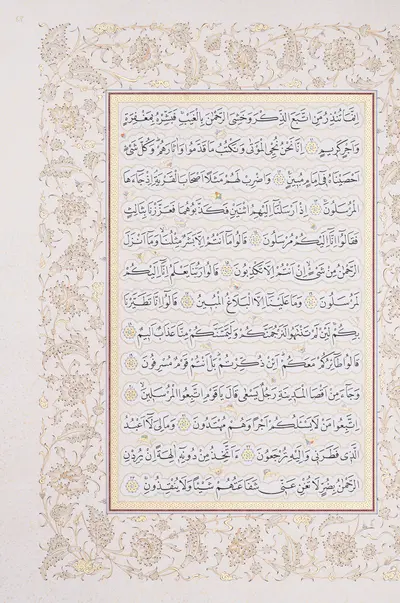 اِنَّمَا تُنْذِرُ مَنِ اتَّبَعَ الذِّكْرَ وَخَشِيَ الرَّحْمٰنَ بِالْغَيْبِ فَبَشِّرْهُ بِمَغْفِرَةٍ
وَاَجْرٍ كَرِيمٍ اِنَّا نَحْنُ نُحْيِي الْمَوْتٰى وَنَكْتُبُ مَا قَدَّمُوا وَاٰثَارَهُمْ وَكُلَّ شَيْءٍ
اَحْصَيْنَاهُ فِي اِمَامٍ مُبِينٍ وَاضْرِبْ لَهُمْ مَثَلًا اَصْحَابَ الْقَرْيَةِ اِذْ جَاءَهَا
الْمُرْسَلُونَ اِذْ اَرْسَلْنَا اِلَيْهِمُ اثْنَيْنِ فَكَذَّبُوهُمَا فَعَزَّزْنَا بِثَالِثٍ
فَقَالُوا اِنَّا اِلَيْكُمْ مُرْسَلُونَ قَالُوا مَا اَنْتُمْ اِلَّا بَشَرٌ مِثْلُنَا وَمَا اَنْزَلَ
الرَّحْمٰنُ مِنْ شَيْءٍ اِنْ اَنْتُمْ اِلَّا تَكْذِبُونَ قَالُوا رَبُّنَا يَعْلَمُ اِنَّا اِلَيْكُمْ
لَمُرْسَلُونَ وَمَا عَلَيْنَا اِلَّا الْبَلَاغُ الْمُبِينُ قَالُوا اِنَّا تَطَيَّرْنَا
بِكُمْ لَئِنْ لَمْ تَنْتَهُوا لَنَرْجُمَنَّكُمْ وَلَيَمَسَّنَّكُمْ مِنَّا عَذَابٌ اَلِيمٌ
قَالُوا طَائِرُكُمْ مَعَكُمْ اَئِنْ ذُكِّرْتُمْ بَلْ اَنْتُمْ قَوْمٌ مُسْرِفُونَ
وَجَاءَ مِنْ اَقْصَا الْمَدِينَةِ رَجُلٌ يَسْعٰى قَالَ يَا قَوْمِ اتَّبِعُوا الْمُرْسَلِينَ
اِتَّبِعُوا مَنْ لَا يَسْـَٔلُكُمْ اَجْرًا وَهُمْ مُهْتَدُونَ وَمَا لِيَ لَا اَعْبُدُ
الَّذِي فَطَرَنِي وَاِلَيْهِ تُرْجَعُونَ ءَاَتَّخِذُ مِنْ دُونِهِ اٰلِهَةً اِنْ يُرِدْنِ
الرَّحْمٰنُ بِضُرٍّ لَا تُغْنِ عَنِّي شَفَاعَتُهُمْ شَيْئًا وَلَا يُنْقِذُونِ